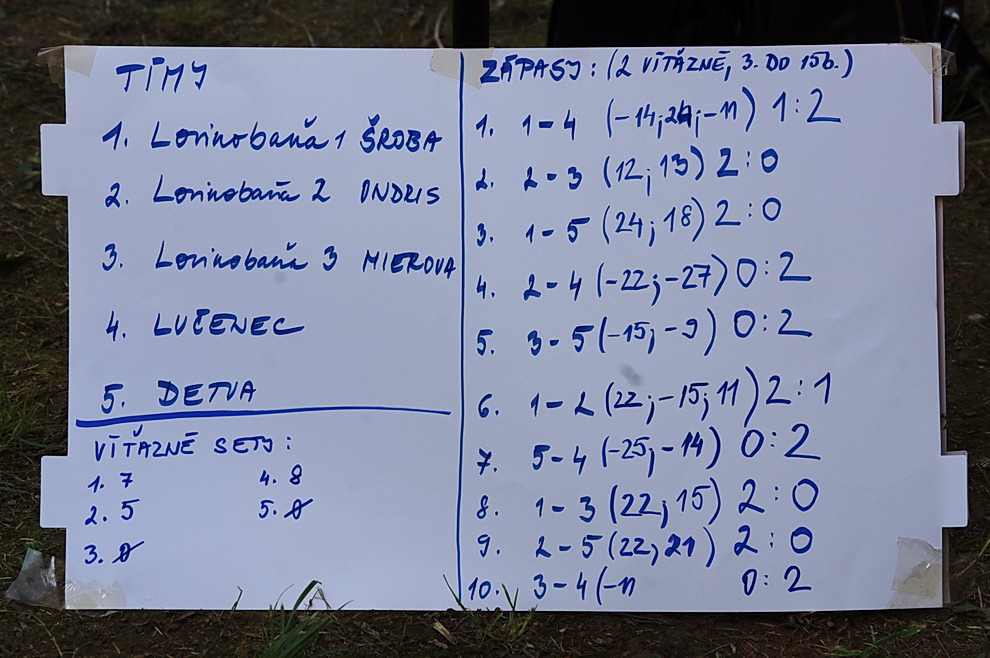 TÍMY
1. Lovinobaňa 1 ŠROBA
2. Lovinobaňa 2 ONDRIS
3. Lovinobaňa 3 MIEROVA
4. LUČENEC
5. DETVA
VÍŤAZNÉ SETY:
1. 7
2. 5
3. 0
4. 8
5. 0
ZÁPASY: (2 VÍŤAZNÉ, 3. DO 15b.)
1. 1-4 (-14; 24; -11) 1:2
2. 2-3 (12; 13) 2:0
3. 1-5 (24; 18) 2:0
4. 2-4 (-22; -27) 0:2
5. 3-5 (-15; -9) 0:2
6. 1-2 (22; -15; 11) 2:1
7. 5-4 (-25; -14) 0:2
8. 1-3 (22; 15) 2:0
9. 2-5 (22; 21) 2:0
10. 3-4 (-11 0:2